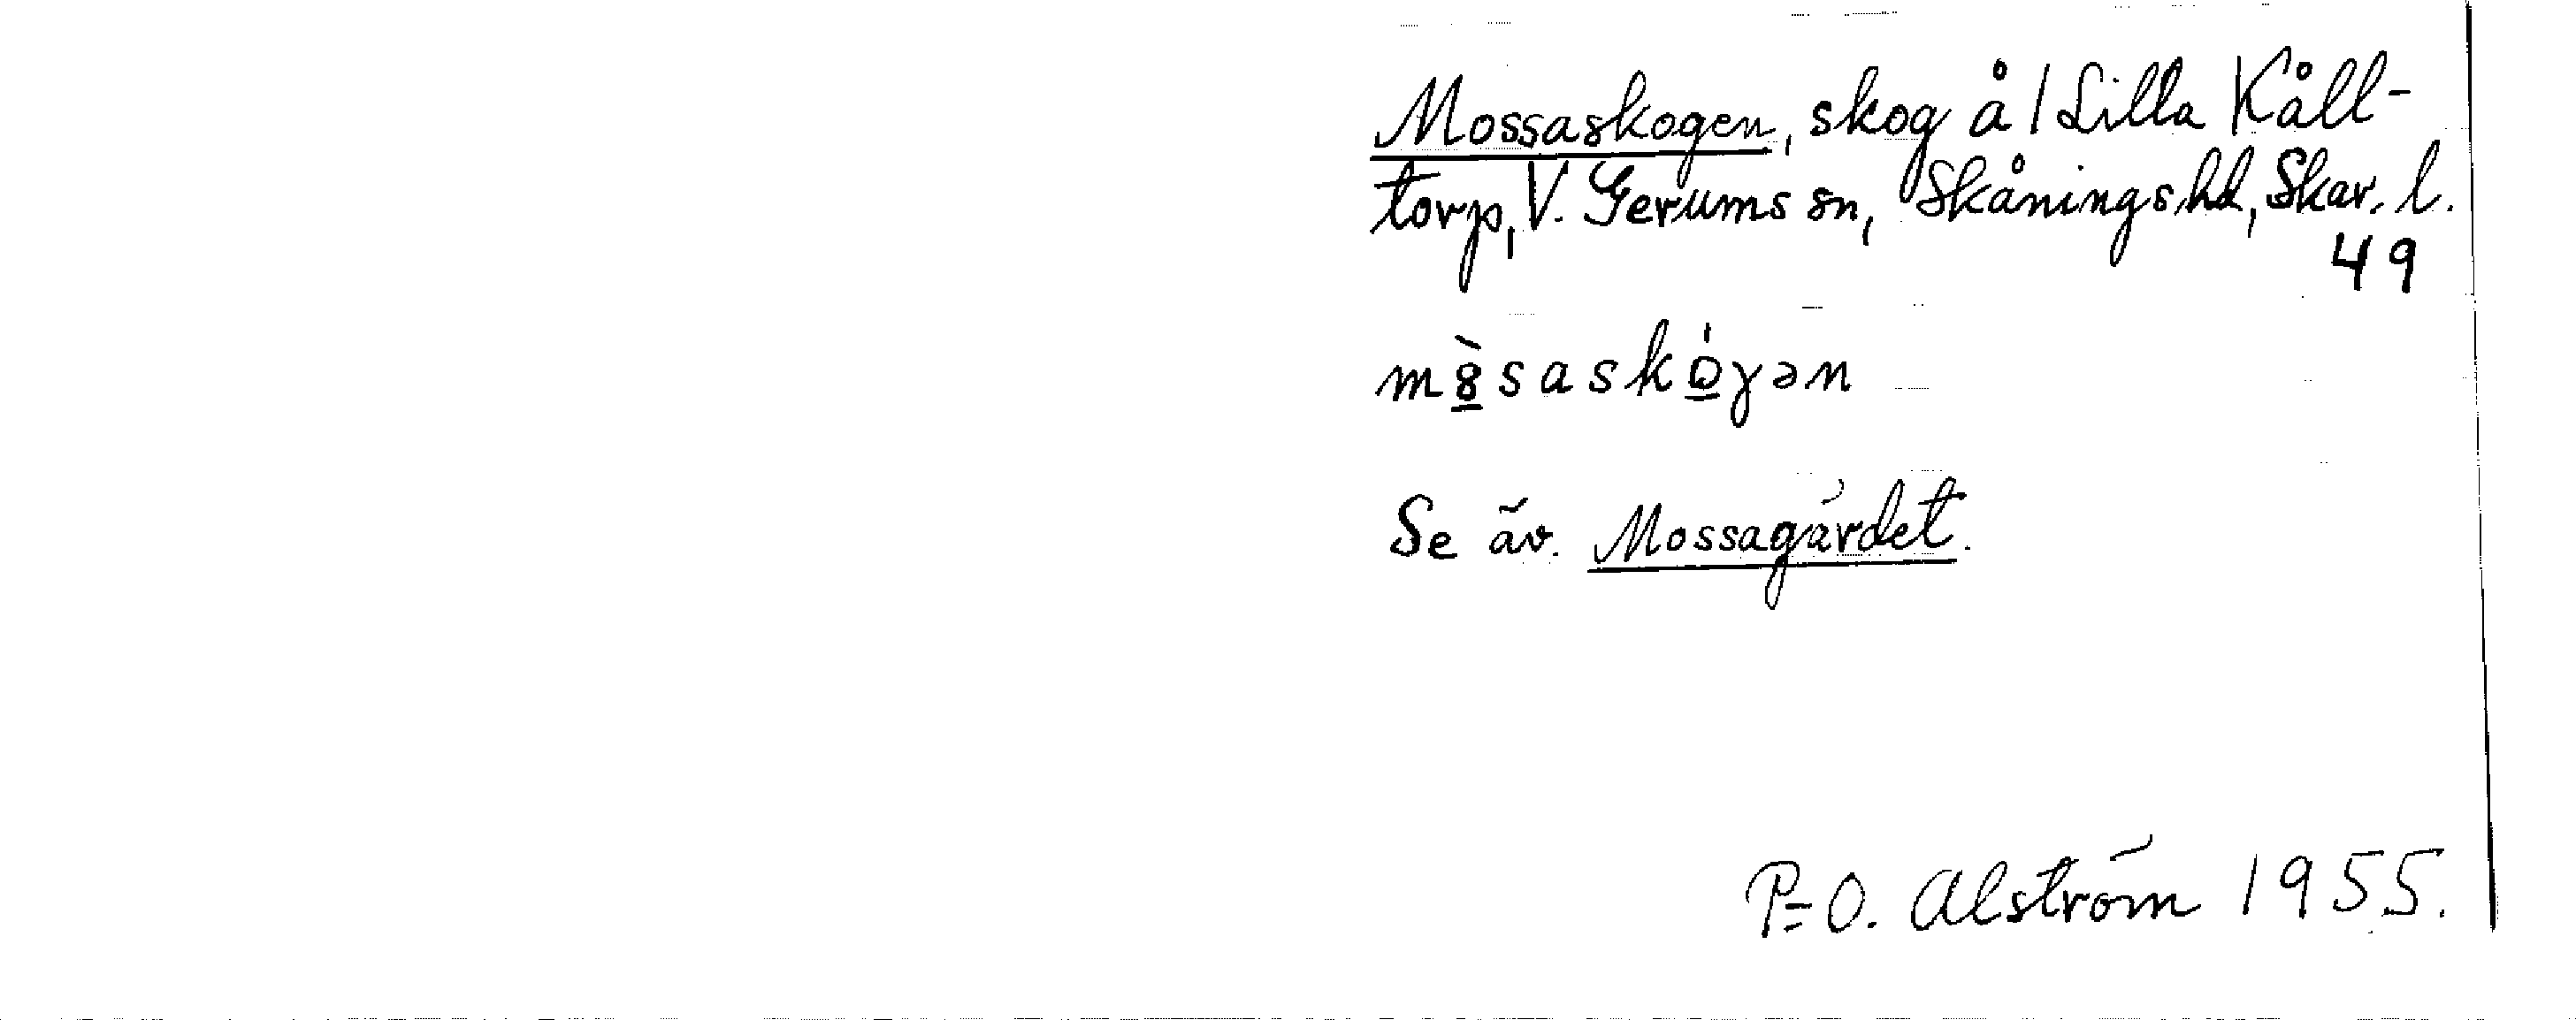 Mossaskogen, skog å 1 Lilla Kåll-
torp, V. Gerums sn, Skånings hd, Skar. l.
49
m8̱̀sasko̱̍γən
Se äv. Mossagärdet.
P=O. Alström 1955.